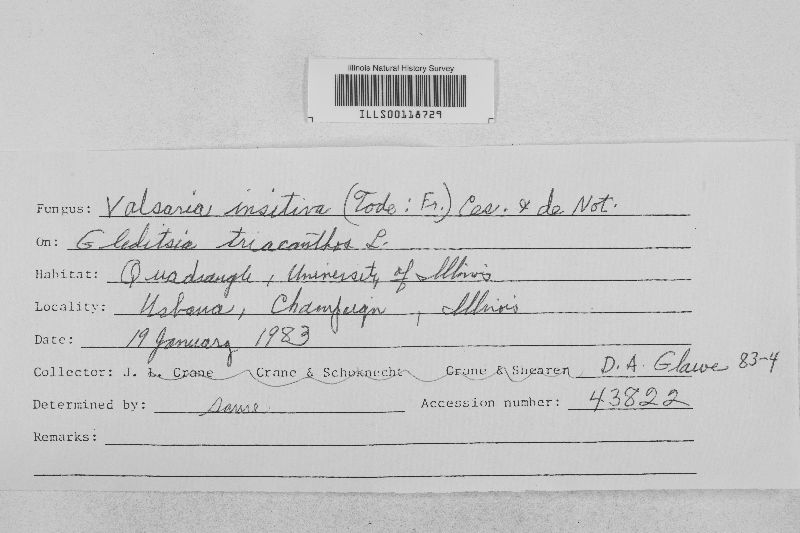 Illinois Natural History Survey
ILLS00118729
Fungus: Valsaria insitiva (Tode: Fr.) Ces. & de Not.
On: Gleditsia triacanthos L.
Habitat: Quadrangle, University of Illinois
Locality: Urbana, Champaign, Illinois
Date: 19 January 1983
Collector: J. L. Crane Crane & Schoknecht Crane & Shearer D.A. Glawe 83-4
Determined by: same Accession number: 43822
Remarks: